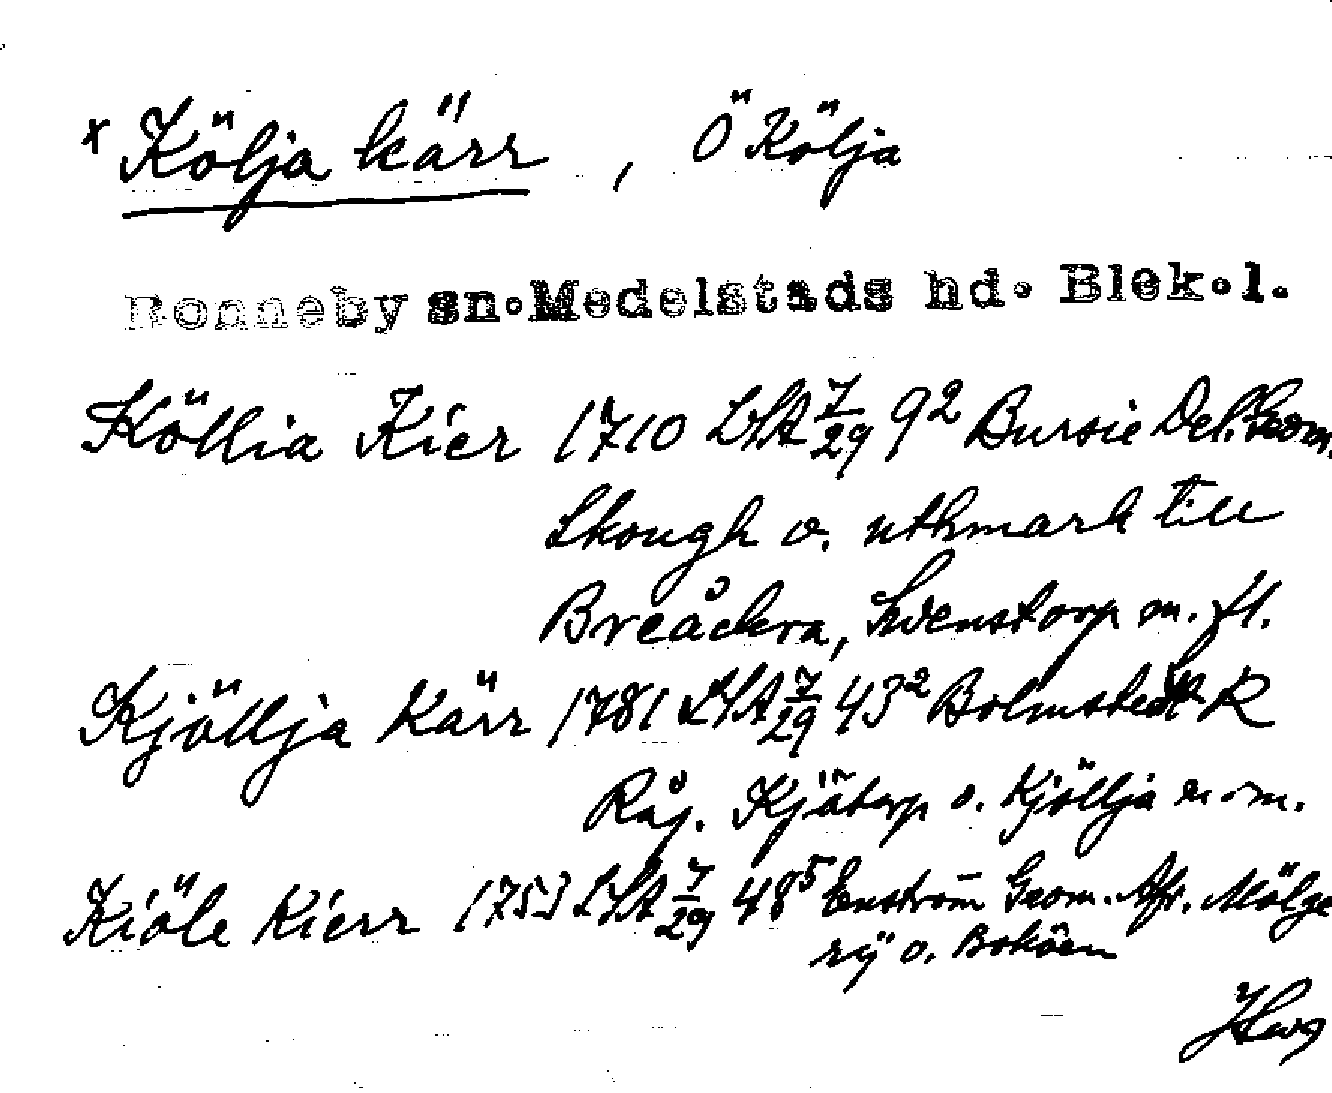 x Kölja kärr, Ö Kölja
Ronneby sn. Medelstads hd. Blek. l.
Köllia Kier 1710 LSA 7/29 9² Bursie Del. Geom.
Skough o. uthmark till
Breåckra, Swenstorp m. fl.
Kjöllja Kärr 1781 LSA 7/29 43² Bolmstedt R
Råg. Kjätorp o. Kjöllja m. m.
Kiöle Kierr 1753 LSA 7/29 48⁵ Enström Geom. Afr. Mölge
rÿ o. Boköen